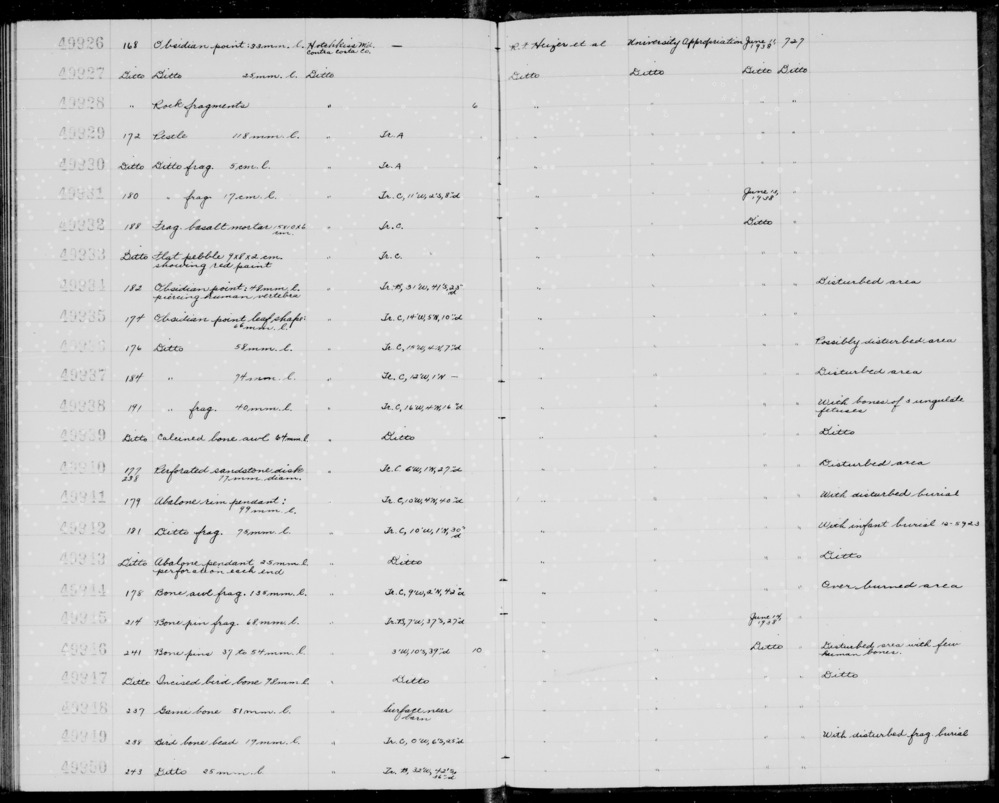 49926 168 Obsidian point: 33mm. l. Hotchkiss Md. Contra Costa Co. — R. F. Heizer et al University Appropriation June 11, 1938 727
49927 Ditto Ditto 28mm. l. Ditto Ditto Ditto Ditto Ditto
49928 " Rock fragments " 6 " " "
49929 172 Pestle 118mm. l. " Tr. A " "
49930 Ditto Ditto frag. 5cm. l. " Tr. A " "
49931 180 " frag. 17cm. l. " Tr. C, 11'W, 2'S, 8"d " June 12, 1938 "
49932 188 Frag. basalt mortar cm. " Tr. C. " Ditto "
49933 Ditto Flat pebble 9x8x2 cm. showing red paint " Tr. C. " "
49934 182 Obsidian point: 48mm. l. piercing human vertebra " Tr. B, 31'W, 41'S, 28"d " " Disturbed area
49935 174 Obsidian point leaf shape: 56mm. l. " Tr. C, 14'W, 5'N, 10"d " "
49936 176 Ditto 58mm. l. " Tr. C, 15'W, 4'N, 7"d " " Possibly disturbed area
49937 184 " 74mm. l. " Tr. C, 12'W, 1'N — " " Disturbed area
49938 191 " frag. 40mm. l. " Tr. C, 16'W, 4'N, 16"d " " With bones of 3 ungulate fetuses
49939 Ditto Calcined bone awl 64mm. l. " Ditto " " Ditto
49940 177 238 Perforated sandstone disk 77mm. diam. " Tr. C 6'W, 1'N, 27"d " " Disturbed area
49941 179 Abalone rim pendant: 99mm. l. " Tr. C, 10'W, 4'N, 40"d " " With disturbed burial
49942 181 Ditto frag. 75mm. l. " Tr. C, 10'W, 1'N, 30"d " " With infant burial 12-5923
49943 Ditto Abalone pendant 25mm. l. perforation each end " Ditto " " Ditto
49944 178 Bone awl frag. 135mm. l. " Tr. C, 9'W, 2'N, 42"d " " Over burned area
49945 214 Bone pin frag. 68mm. l. " Tr. B, 7'W, 37'S, 27"d " June 14, 1938 "
49946 241 Bone pins 37 to 54mm. l. " 3'W, 10'S, 39"d 10 " Ditto " Disturbed area with few human bones.
49947 Ditto Incised bird bone 78mm. l. " Ditto " " Ditto
49948 237 Game bone 51mm. l. " Surface near barn " "
49949 238 Bird bone bead 19mm. l. " Tr. C, 0'W, 6'S, 25"d " " With disturbed frag. burial
49950 243 Ditto 25mm. l. " Tr. B, 32'W, 42'S, 26"d " " "